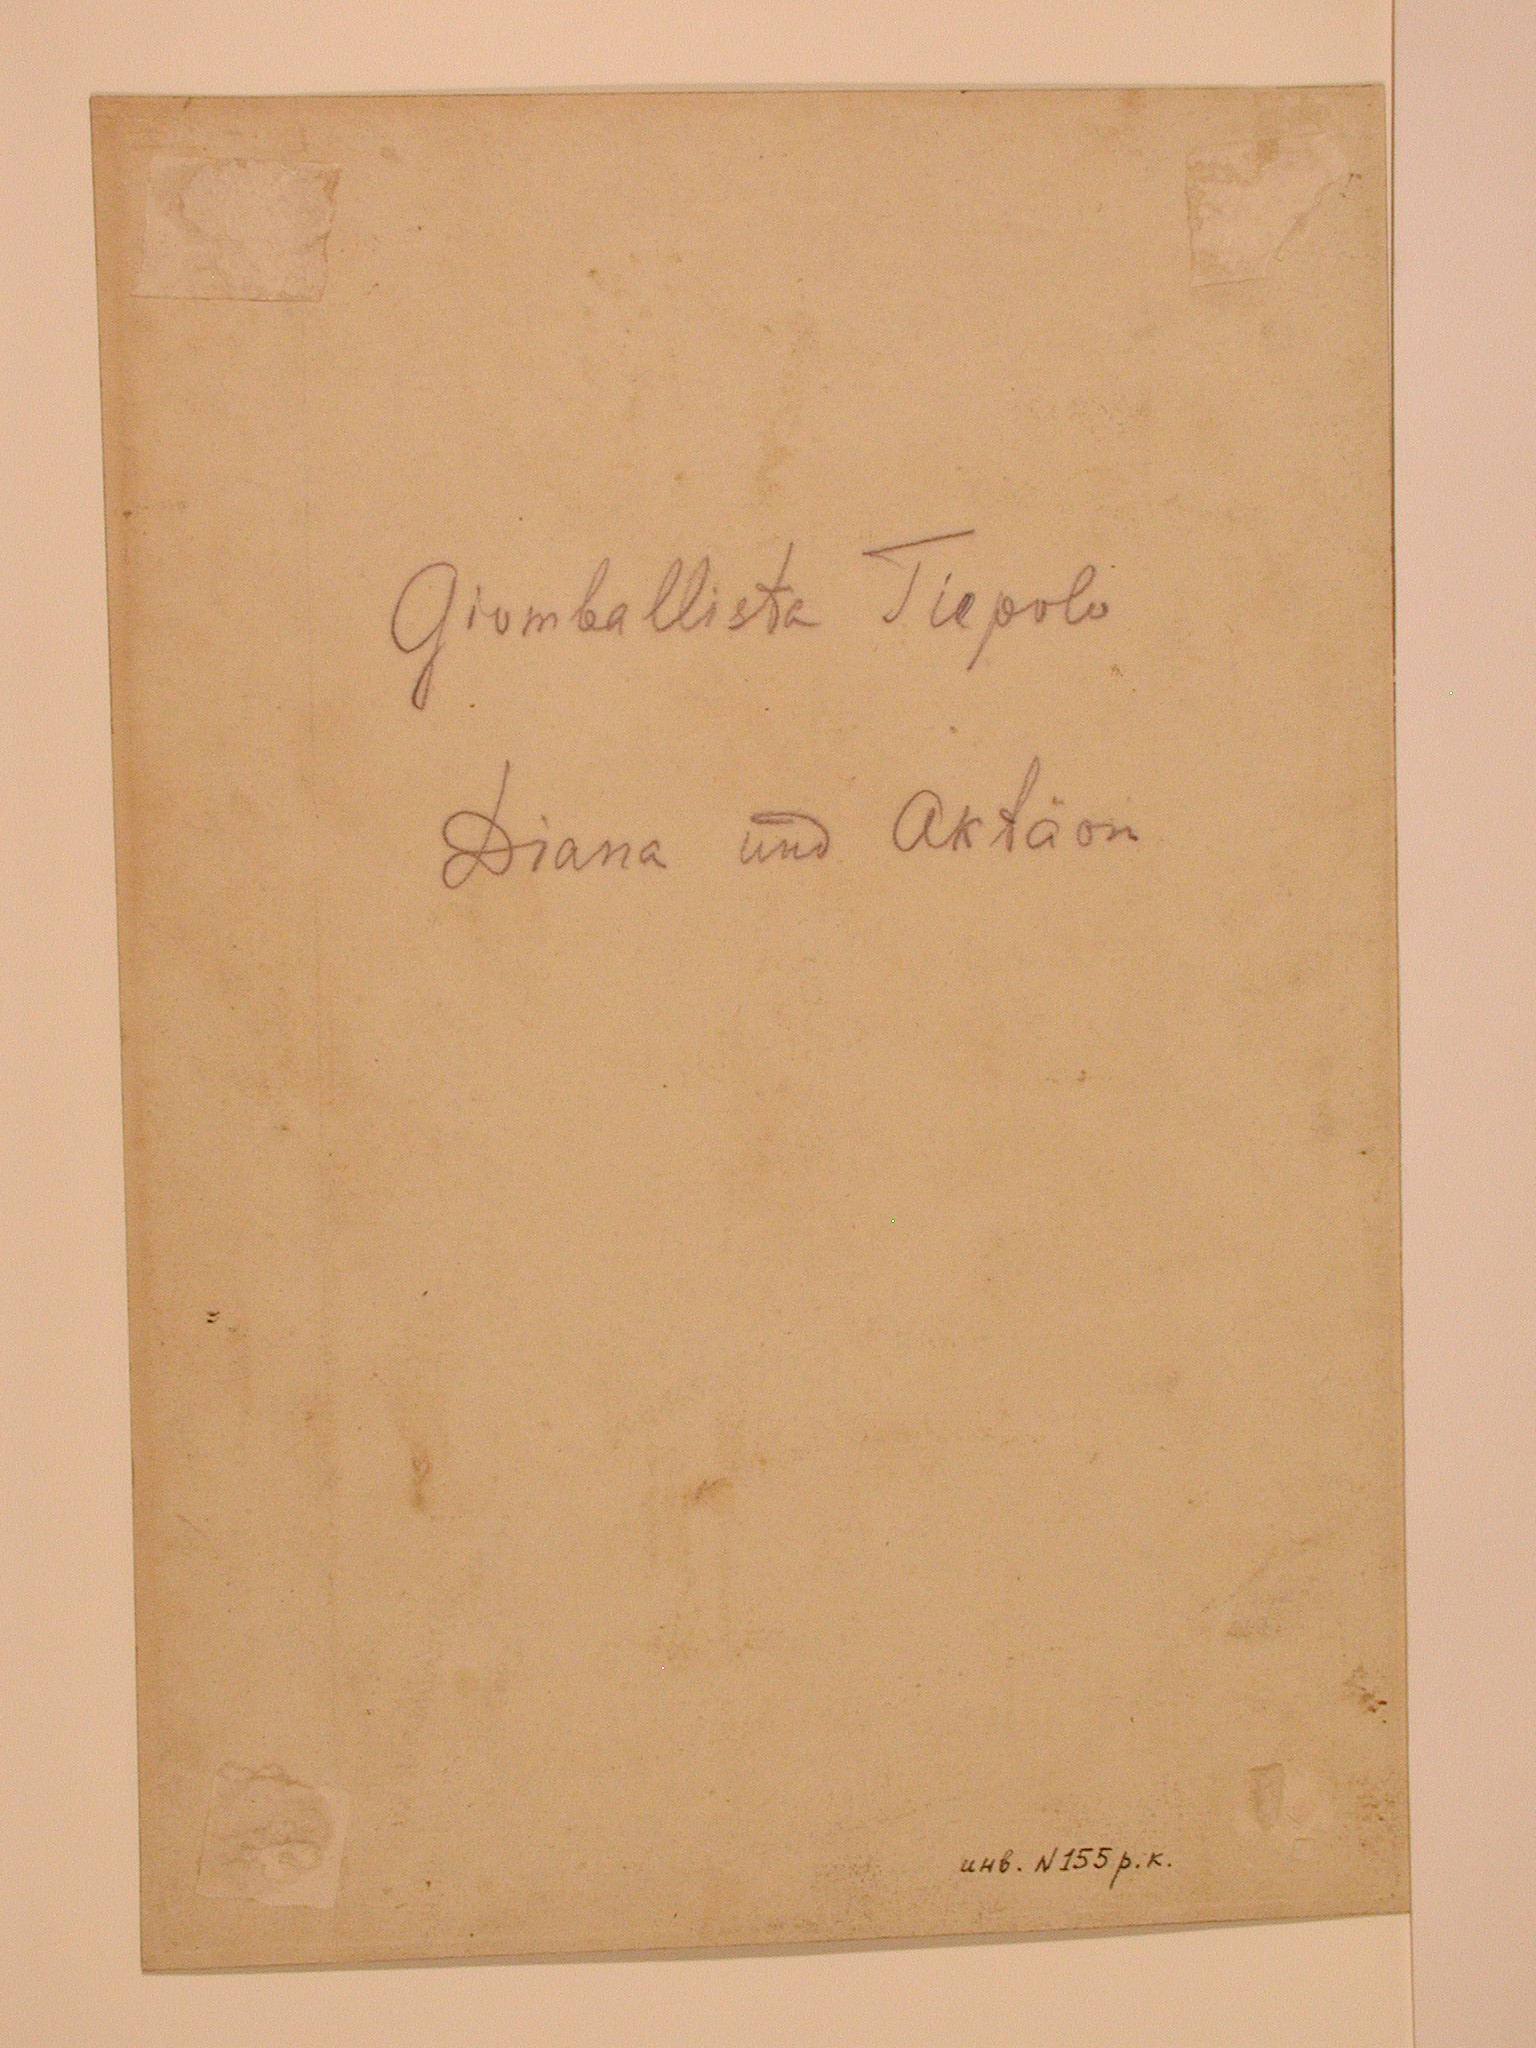 Giomballista Tiepolo
Diana und Aktäon
инв. N155 р.к.